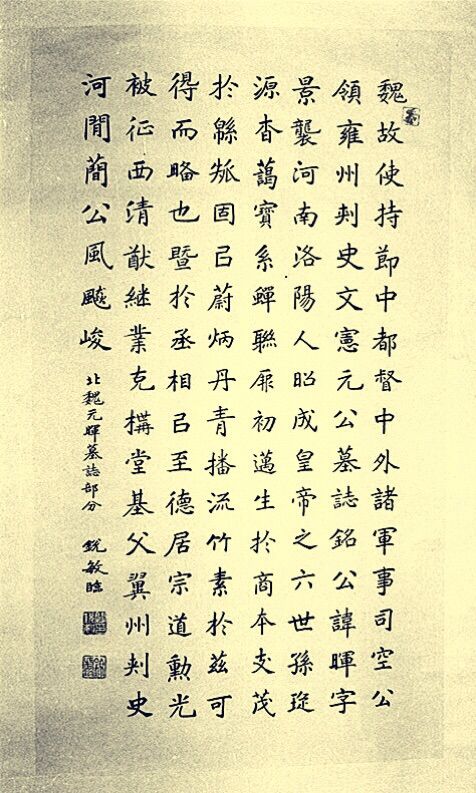 魏故使持節中都督中外諸軍事司空公
領雍州刾史文憲元公墓誌銘公諱暉字
景襲河南洛陽人昭成皇帝之六世孫琁
源杳藹寶系蟬聯厥初邁生於商本支茂
於緜瓞固已蔚炳丹青播流竹素於茲可
得而略也暨於丞相已至德居宗道勳光
被征西清猷継業克構堂基父翼州刾史
河間蕳公風飈峻
北魏元暉墓誌部分
銳敏臨